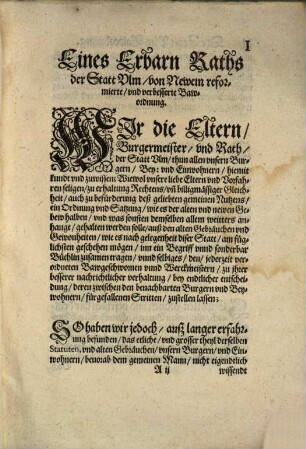 1
Eines Erbarn Raths
der Statt Vlm / von Newem refor-
mierte / vnd verbesserte Baw-
ordnung.
WIr die Eltern /
Burgermeister / vnd Rath /
der Statt Vlm / thun allen vnsern Bur-
gern / Bey: vnd Einwohnern / hiemit
kundt vnd zuwissen: Wiewol vnser liebe Eltern vnd Vorfah-
ren seligen / zu erhaltung Rechtens / vñ billigmässiger Gleich-
heit / auch zu befürderung deß geliebten gemeinen Nutzens /
ein Ordnung vnd Satzung / wie es der alten vnd newen Ge-
bew halben / vnd was sonsten demselben allem weitters an-
hangt / gehalten werden solle / auß den alten Gebräuchen vnd
Gewonheiten / wie es nach gelegenheit diser Statt / am füg-
lichsten geschehen mögen / inn ein Begriff vnnd sonderbar
Büchlin zusamen tragen / vnnd selbiges / den / jederzeit ver-
ordneten Bawgeschwornen vnnd Werckmeistern / zu jhrer
besserer nachrichtlicher verhaltung / bey endtlicher entschei-
dung / deren zwischen den benachbarten Burgern vnd Bey-
wohnern / fürgefallenen Stritten / zustellen lassen:
SO haben wir jedoch / auß langer erfahr-
ung befunden / das etliche / vnd grosser theyl derselben
Statuten, vnd alten Gebräuchen / vnsern Burgern / vnd Ein-
wohnern / beuorab dem gemeinen Mann / nicht eigendtlich
A ij wissendt